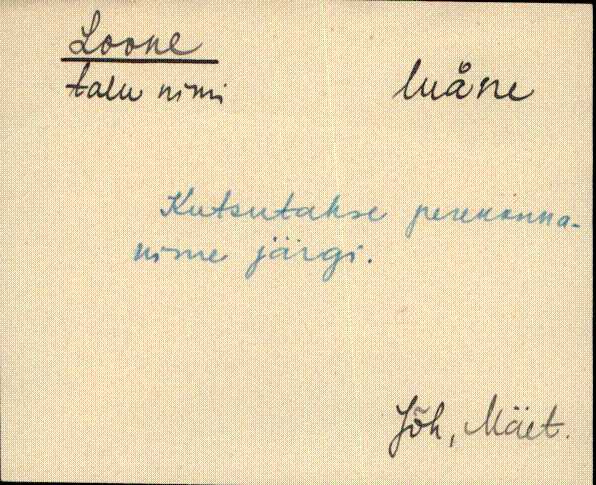 Loone
talu nimi luåne
Kutsutakse perekonna-
nime järgi.
Jõh, Mäet.